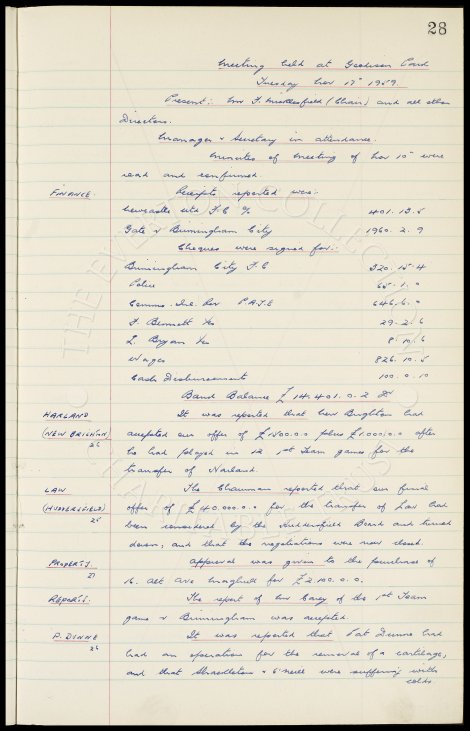 28
Meeting held at Goodison Park
Tuesday Nov 17" 1959.
Present:- Mr F. Micklesfield (Chair) and all other
Directors.
Manager & Secretary in attendance.
Minutes of Meeting of Nov 10" were
read and confirmed.
FINANCE. Receipts reported were:-
Newcastle Utd F.C. 401. 13. 5
Gate v Birmingham City 1960. 2. 9
Cheques were signed for:-
Birmingham City F.C 320. 15. 4
Police 65. 1. 0
Comms. Inl. Rev P.A.Y.E 646. 6. 0
F. Bennett 29. 2. 6
L. Bryan 8. 10. 6
Wages 826. 10. 5
Cash Disbursements 100. 0. 10
Bank Balance £ 14,401. 0. 2
HARLAND It was reported that New Brighton had
(NEW BRIGHTON) accepted our offer of £1500.0.0 plus £1000.0.0 after
26 he had played in 12 1st Team games for the
transfer of Harland.
LAW The Chairman reported that our final
(HUDDERSFIELD) offer of £40.000.0.0 for the transfer of Law had
25 been considered by the Huddersfield Board and turned
down, and that the negotiations were now closed.
PROPERTY. Approval was given to the purchase of
21 16. Ave Maghull for £2100.0.0.
REPORTS. The report of Mr Carey of the 1st Team
game v Birmingham was accepted.
P. DUNNE It was reported that Pat Dunne had
26 had an operation for the removal of a cartilage,
and that Shackleton & O'Neill were suffering with
colds.
THE EVERTON COLLECTION